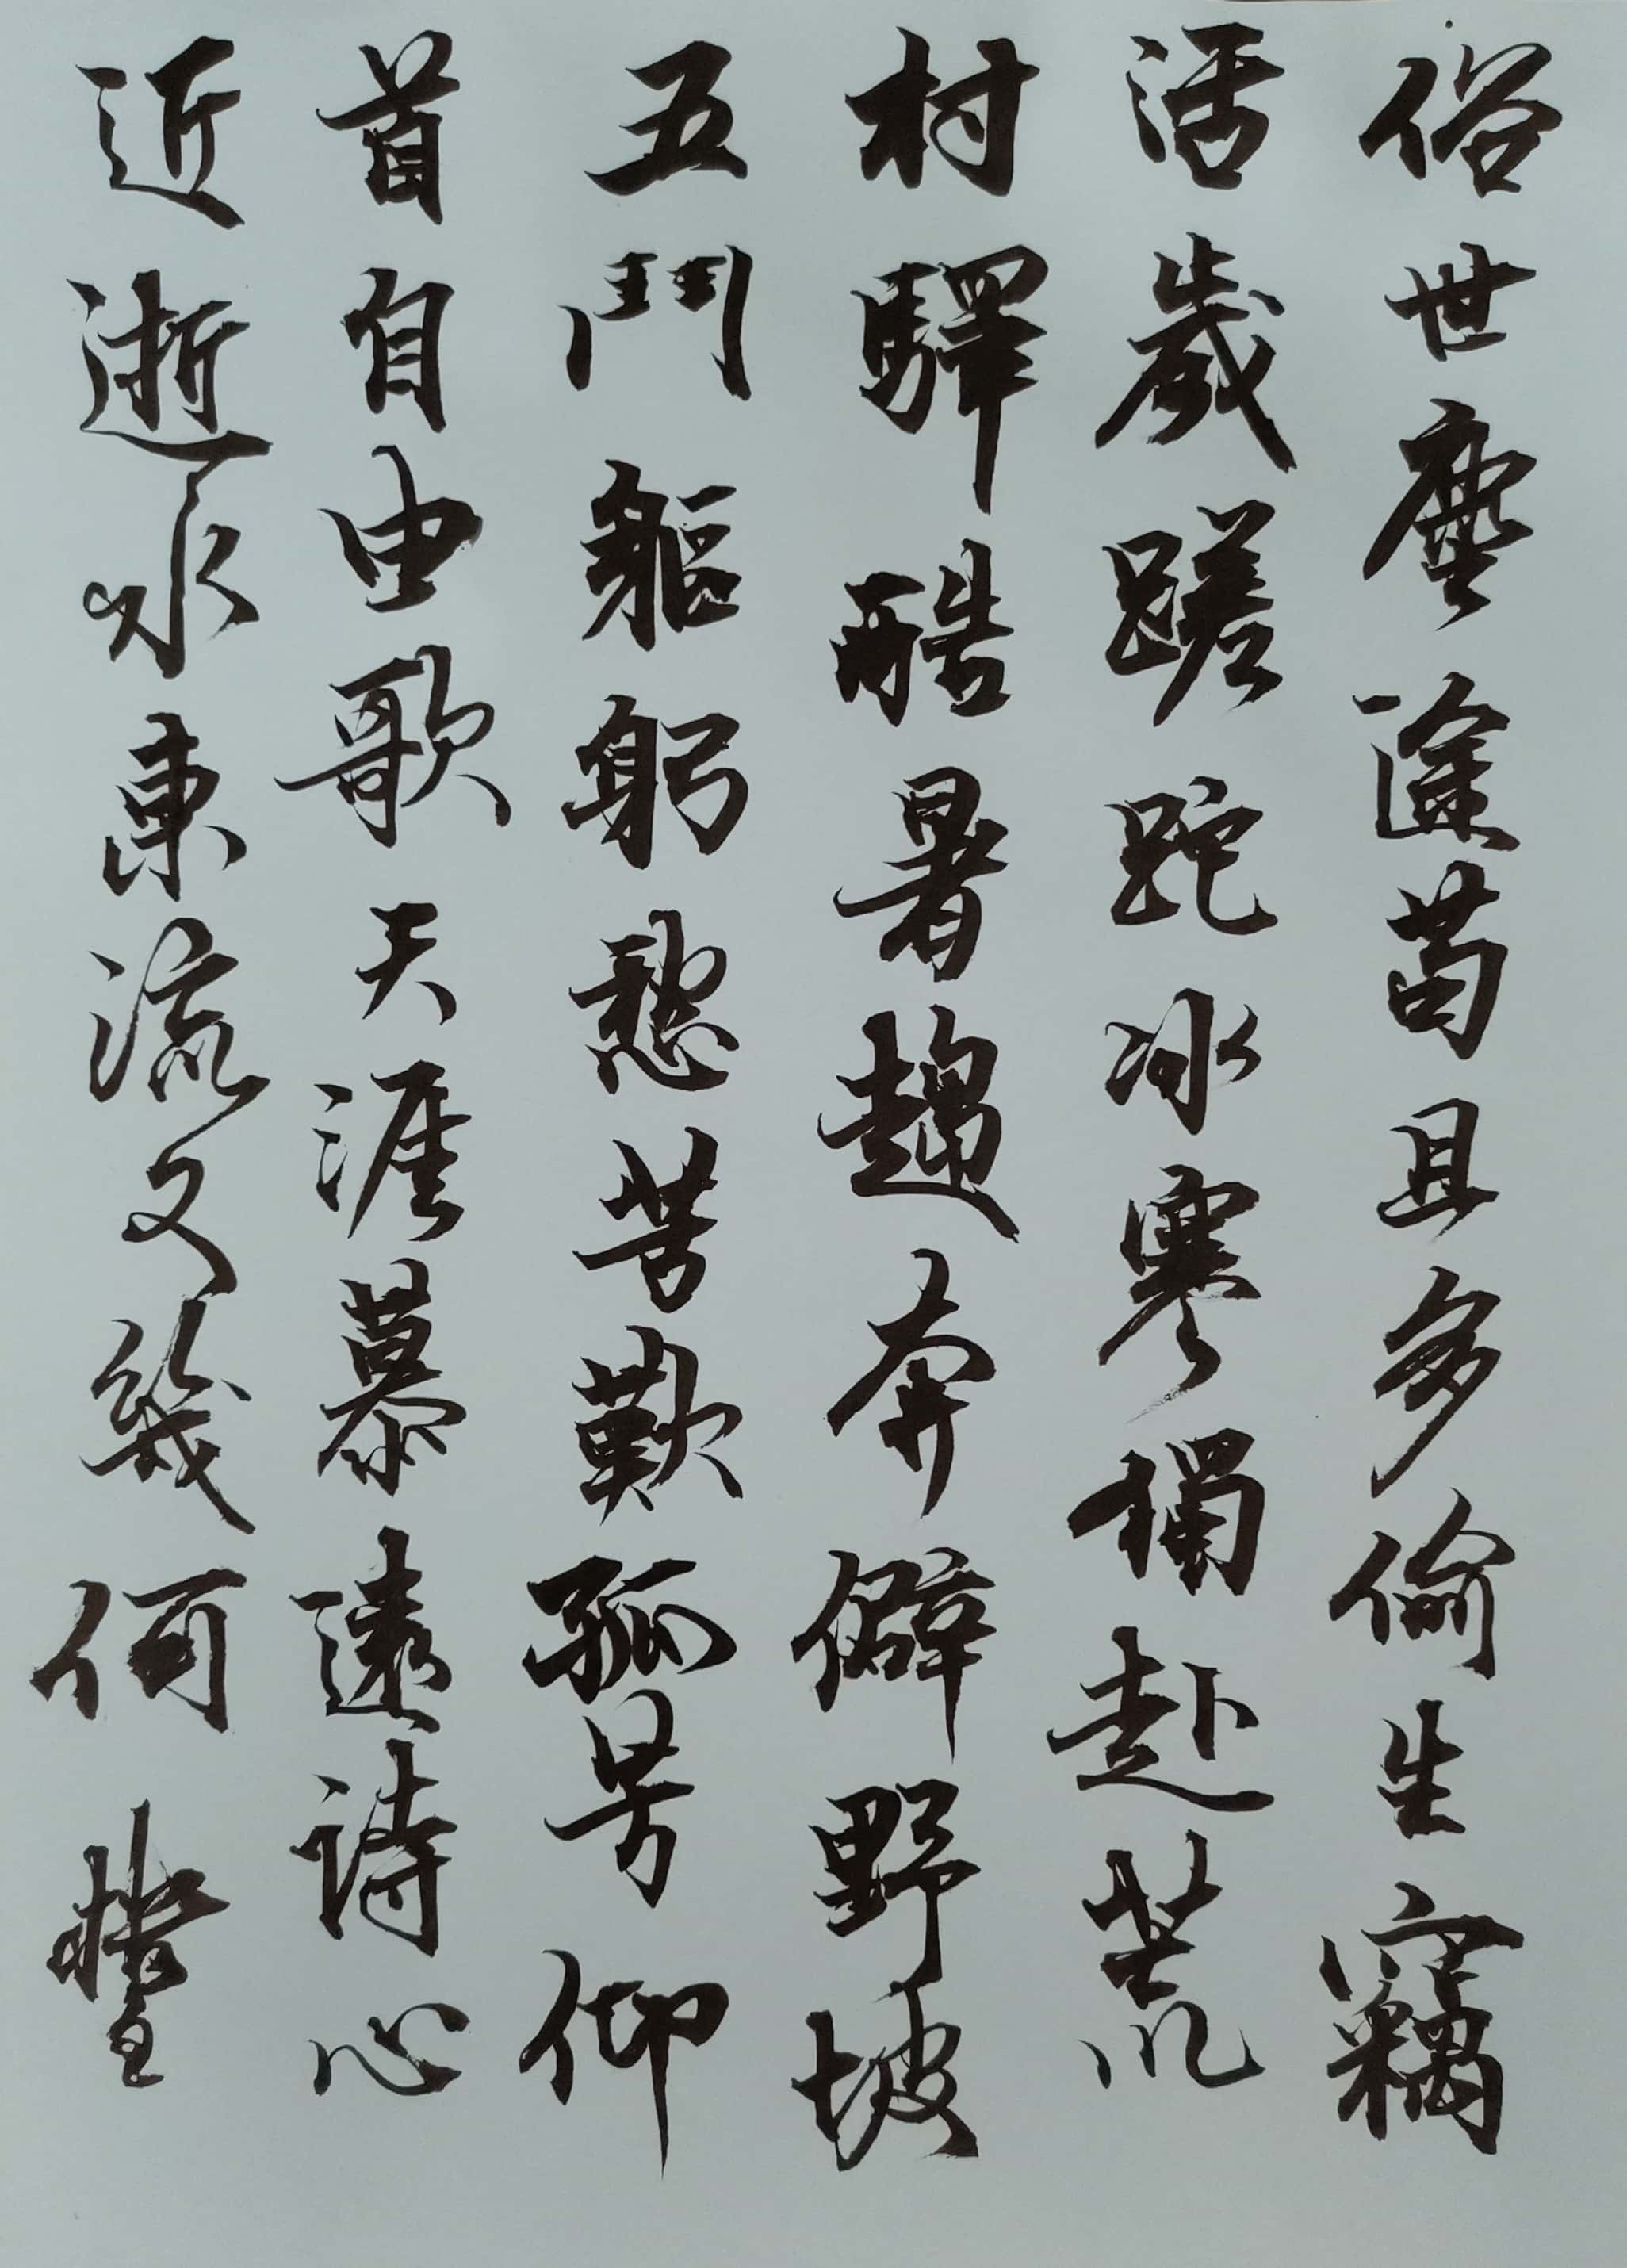 俗世塵途苟且多偷生竊
活歲蹉跎冰寒獨赴荒
村驛酷暑趨奔僻野坡
五鬥軀躬愁苦歎孤芳仰
首自由歌天涯慕遠詩心
近逝水東流又幾何